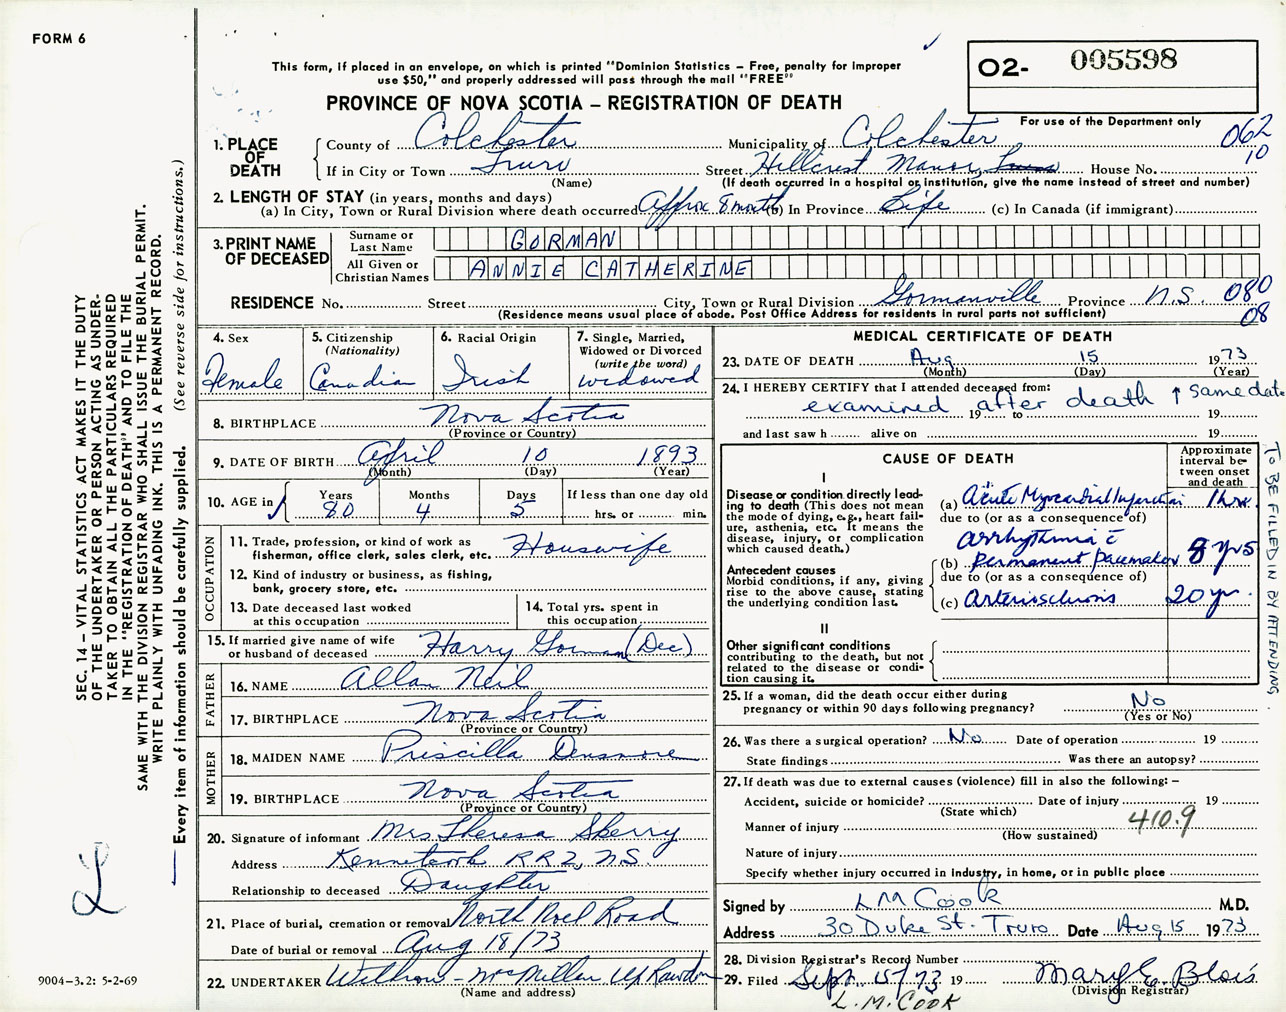 FORM 6
This form, if placed in an envelope, on which is printed "Dominion Statistics – Free, penalty for improper
use $50," and properly addressed will pass through the mail "FREE"
PROVINCE OF NOVA SCOTIA – REGISTRATION OF DEATH
O2- 005598
For use of the Department only
062
10
1. PLACE OF DEATH
County of Colchester Municipality of Colchester
If in City or Town Truro Street Hillcrest Manor, House No.
(Name) (If death occurred in a hospital or institution, give the name instead of street and number)
2. LENGTH OF STAY (in years, months and days)
(a) In City, Town or Rural Division where death occurred Approx 8 month (b) In Province Life (c) In Canada (if immigrant)
3. PRINT NAME OF DECEASED
Surname or Last Name GORMAN
All Given or Christian Names ANNIE CATHERINE
RESIDENCE No. Street City, Town or Rural Division Gormanville Province N.S. 080
(Residence means usual place of abode. Post Office Address for residents in rural parts not sufficient) 08
4. Sex Female
5. Citizenship (Nationality) Canadian
6. Racial Origin Irish
7. Single, Married, Widowed or Divorced (write the word) widowed
8. BIRTHPLACE Nova Scotia
(Province or Country)
9. DATE OF BIRTH April 10 1893
(Month) (Day) (Year)
10. AGE in Years 80 Months 4 Days 5 If less than one day old hrs. or min.
OCCUPATION
11. Trade, profession, or kind of work as
fisherman, office clerk, sales clerk, etc. Houswife
12. Kind of industry or business, as fishing,
bank, grocery store, etc.
13. Date deceased last worked
at this occupation
14. Total yrs. spent in
this occupation
15. If married give name of wife
or husband of deceased Harry Gorman (Dec)
FATHER
16. NAME Allan Neil
17. BIRTHPLACE Nova Scotia
(Province or Country)
MOTHER
18. MAIDEN NAME Priscilla Densmore
19. BIRTHPLACE Nova Scotia
(Province or Country)
20. Signature of informant Mrs. Theresa Sherry
Address Kennetcook RR2, N.S.
Relationship to deceased Daughter
21. Place of burial, cremation or removal North Noel Road
Date of burial or removal Aug 18/73
22. UNDERTAKER Withrow - McMillan Up Rawdon
(Name and address)
MEDICAL CERTIFICATE OF DEATH
23. DATE OF DEATH Aug 15 1973
(Month) (Day) (Year)
24. I HEREBY CERTIFY that I attended deceased from:
examined 19 after to death ↑ same date 19
and last saw h alive on 19
CAUSE OF DEATH
Approximate interval between onset and death
I
Disease or condition directly lead-
ing to death (This does not mean
the mode of dying, e.g., heart fail-
ure, asthenia, etc. It means the
disease, injury, or complication
which caused death.)
(a) Acute Myocardial Infarction 1 hr.
due to (or as a consequence of)
arrhythmia c̄
(b) permanent pacemaker 8 yrs
due to (or as a consequence of)
(c) Arteriosclerosis 20 yr.
Antecedent causes
Morbid conditions, if any, giving
rise to the above cause, stating
the underlying condition last.
II
Other significant conditions
contributing to the death, but not
related to the disease or condi-
tion causing it.
TO BE FILLED IN BY ATTENDING
25. If a woman, did the death occur either during
pregnancy or within 90 days following pregnancy? No
(Yes or No)
26. Was there a surgical operation? No Date of operation 19
State findings Was there an autopsy?
27. If death was due to external causes (violence) fill in also the following: –
Accident, suicide or homicide? Date of injury 19
(State which)
Manner of injury 410.9
(How sustained)
Nature of injury
Specify whether injury occurred in industry, in home, or in public place
Signed by L M Cook M.D.
Address 30 Duke St. Truro Date Aug 15 1973
28. Division Registrar's Record Number
29. Filed Sept. 15/73 19 Mary E. Blois
(Division Registrar)
L.M. COOK
SEC. 14 – VITAL STATISTICS ACT MAKES IT THE DUTY
OF THE UNDERTAKER OR PERSON ACTING AS UNDER-
TAKER TO OBTAIN ALL THE PARTICULARS REQUIRED
IN THE "REGISTRATION OF DEATH" AND TO FILE THE
SAME WITH THE DIVISION REGISTRAR WHO SHALL ISSUE THE BURIAL PERMIT.
WRITE PLAINLY WITH UNFADING INK. THIS IS A PERMANENT RECORD.
Every item of information should be carefully supplied. (See reverse side for instructions.)
9004-3.2: 5-2-69